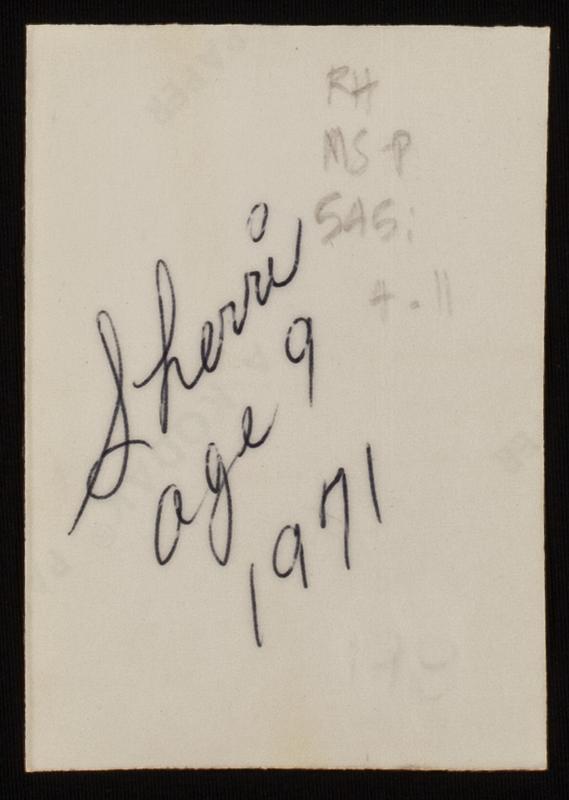 RH
MS-P
545:
4.11
Sherri
age 9
1971